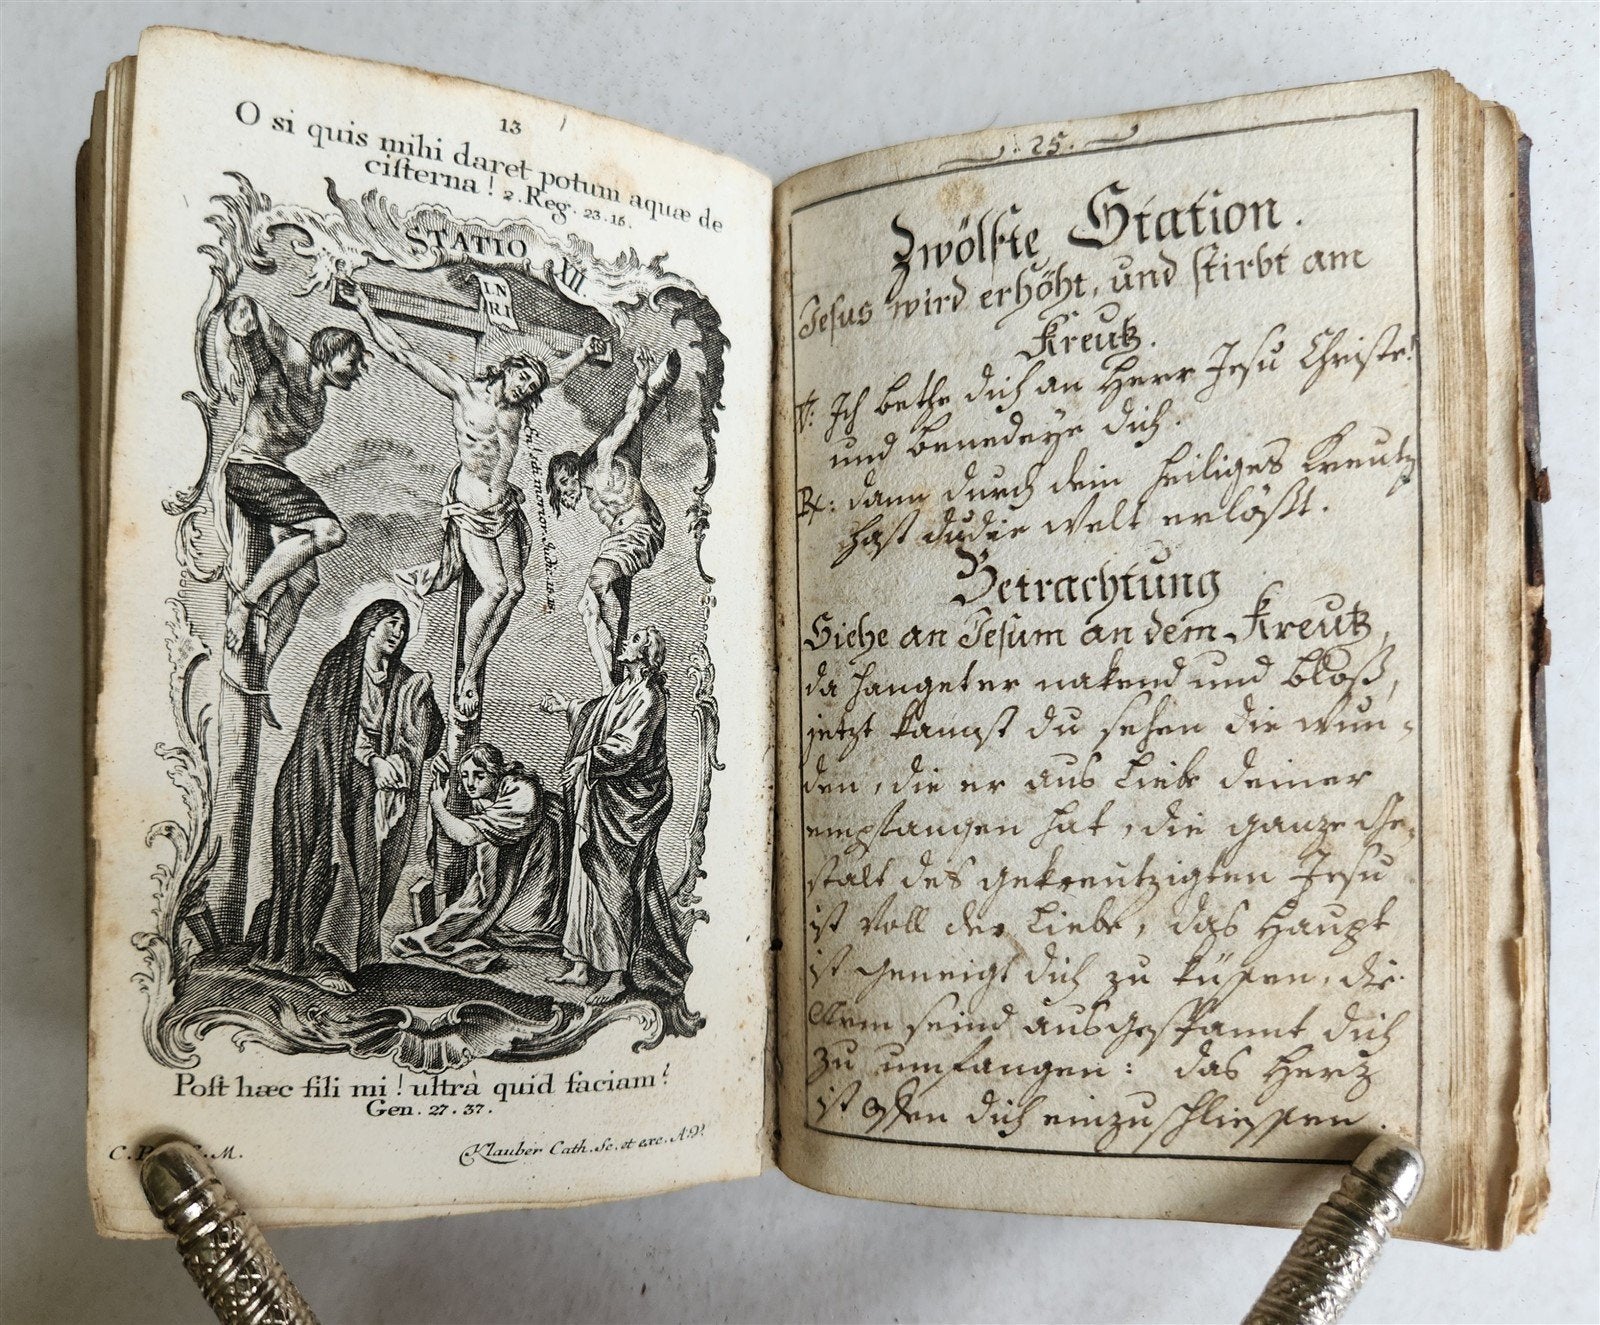 13
O si quis mihi daret potum aquæ de
ciſterna! 2. Reg. 23. 15.
STATIO XII
IN
RI
Poſt hæc fili mi! ultrà quid faciam?
Gen. 27. 37.
C. P. C. M.
Klauber Cath. Sc. et exc. A.V.
. 25 .
Zwölfte Station.
Jeſus wird erhöht, und ſtirbt am
Kreutz.
V: Ich bethe dich an Herr Jeſu Chriſte!
und benedeye dich.
R: dann durch dein heiliges Kreutz
haſt du die Welt erlößt.
Betrachtung
Siehe an Jeſum an dem Kreutz,
da hanget er nakend und bloß,
jetzt kanſt du ſehen die Wun-
den, die er aus Liebe deiner
empfangen hat, die ganze Ge-
ſtalt des gekreutzigten Jeſu
iſt voll der Liebe, das Haupt
iſt geneigt dich zu küſſen, die
Arm ſeind ausgeſpannt dich
zu umfangen: das Herz
iſt offen dich einzuſchlieſſen.